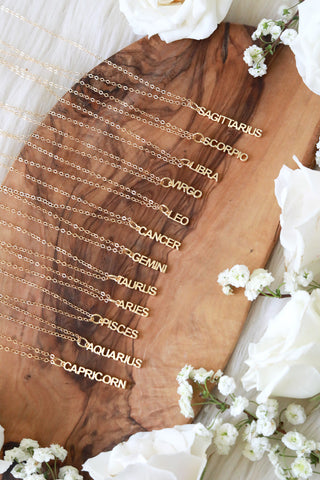 SAGITTARIUS
SCORPIO
LIBRA
VIRGO
LEO
CANCER
GEMINI
TAURUS
ARIES
PISCES
AQUARIUS
CAPRICORN